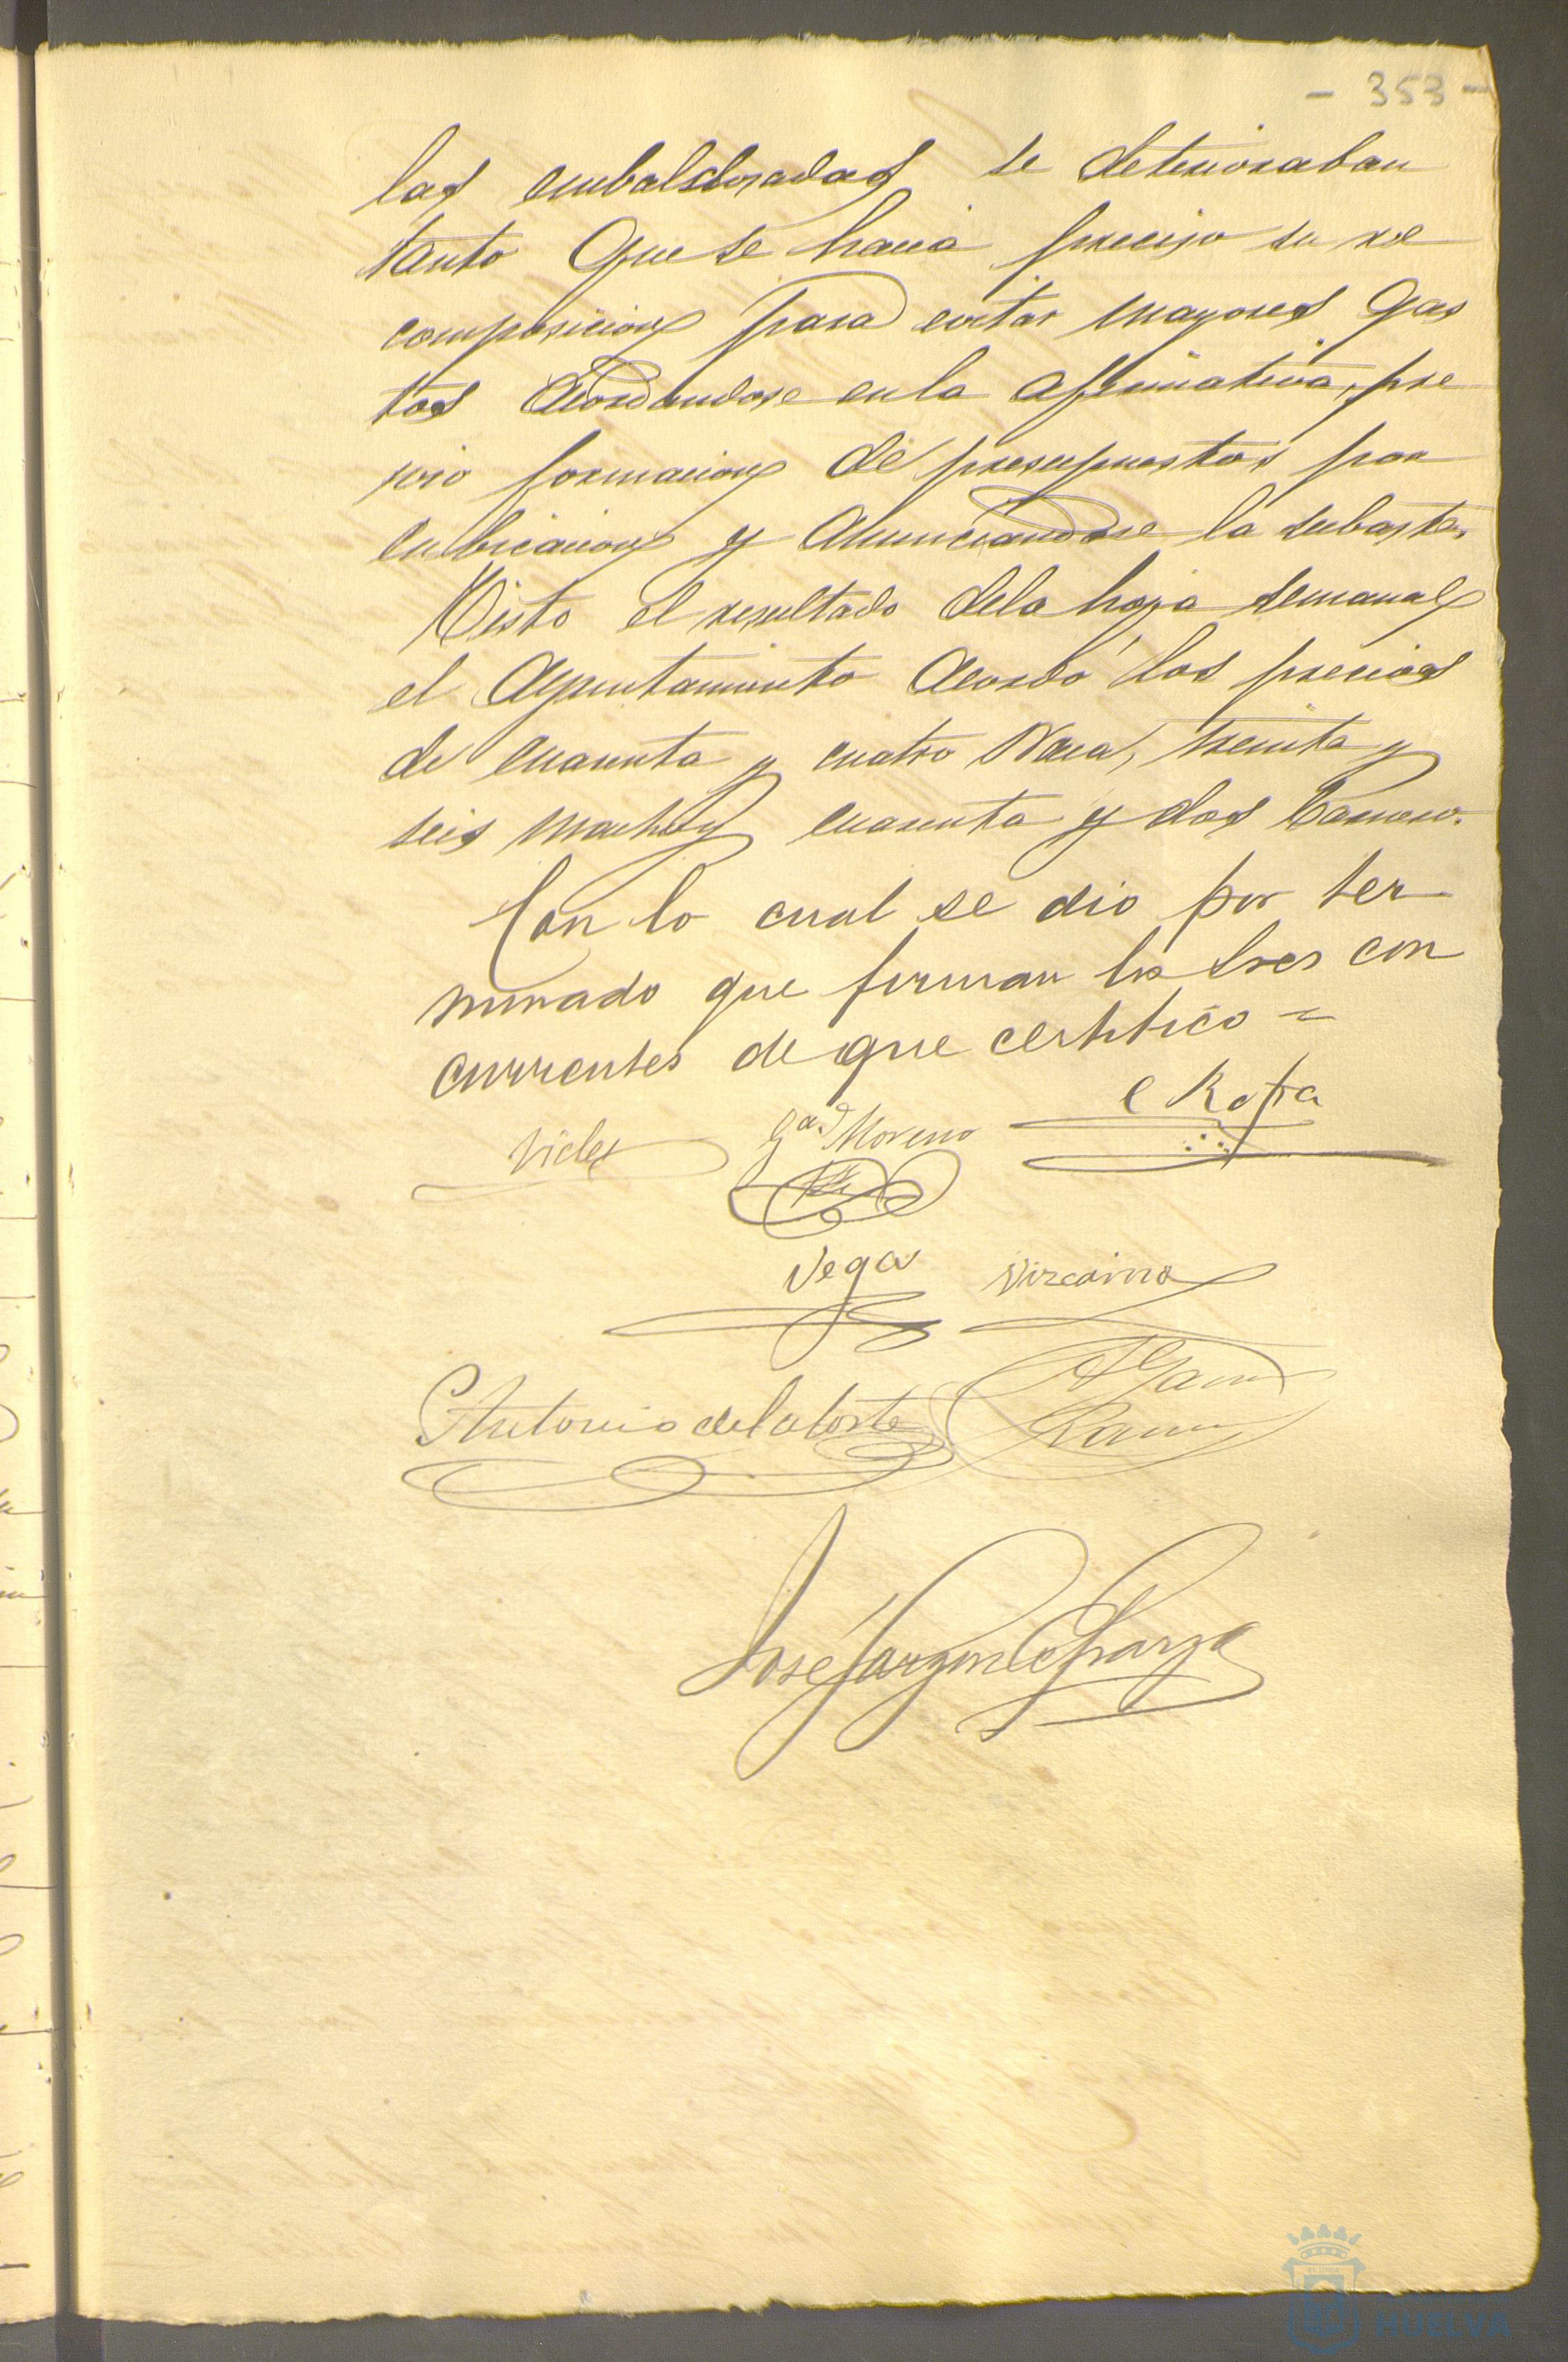 - 353 -
las embaldosadas se deterioraban
tanto que se hacia preciso su re
composicion para evitar mayores gas
tos acordandose en la afirmativa, pre
vio formacion de presupuestos por
cubicacion y anunciandose la subasta.
Visto el resultado dela hoja semanal
el Ayuntamiento acordó los precios
de cuarenta y cuatro Vaca, treinta y
seis macho y cuarenta y dos Carnero.
Con lo cual se dio por ter
minado que firman los Sres con
currentes de que certifico =
Gª Moreno
Vega Vizcaino
Antonio de la Corte
José
HUELVA